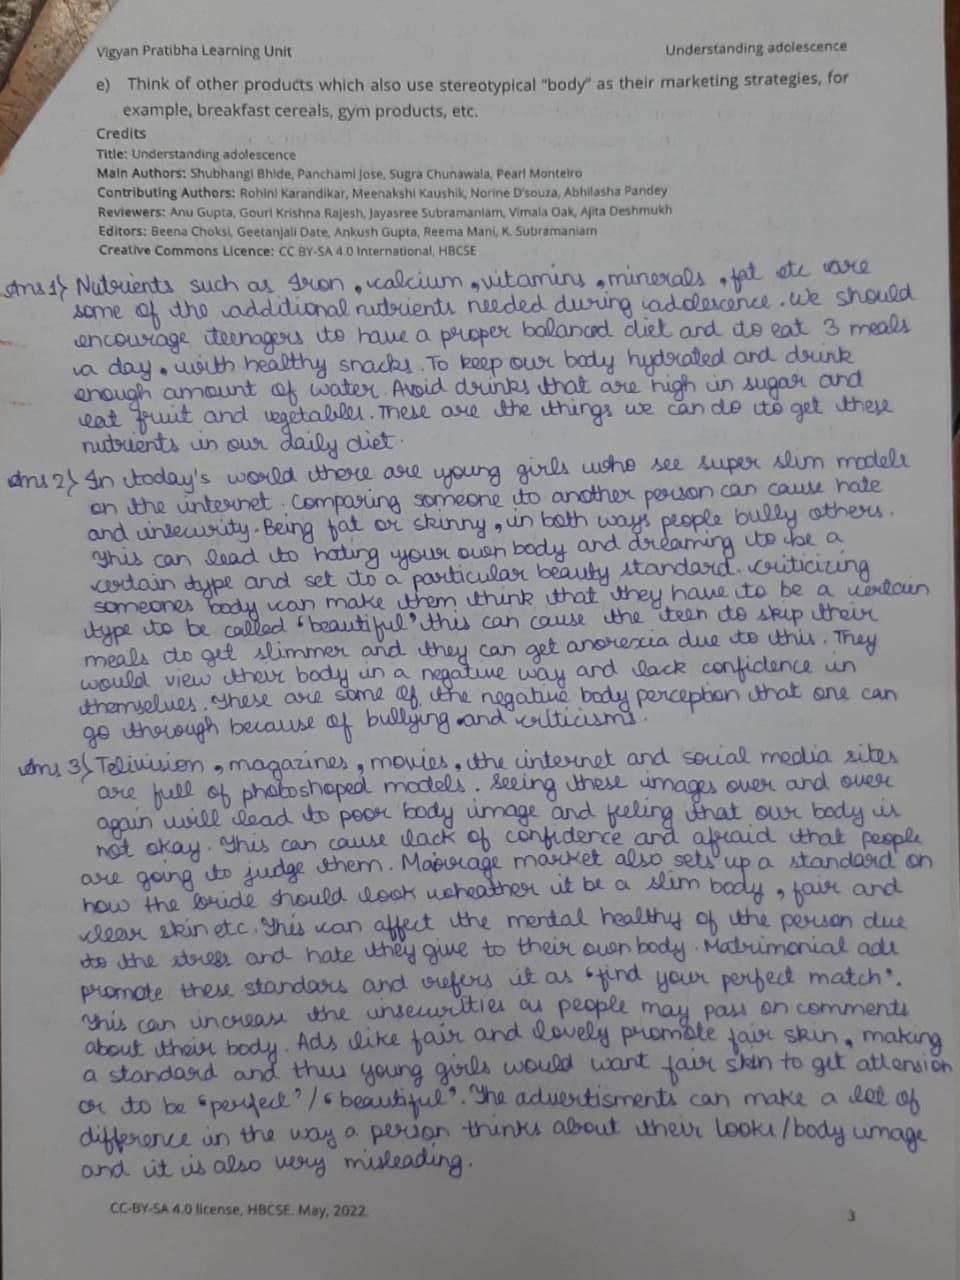 Vigyan Pratibha Learning Unit Understanding adolescence
e) Think of other products which also use stereotypical "body" as their marketing strategies, for
example, breakfast cereals, gym products, etc.
Credits
Title: Understanding adolescence
Main Authors: Shubhangi Bhide, Panchami Jose, Sugra Chunawala, Pearl Monteiro
Contributing Authors: Rohini Karandikar, Meenakshi Kaushik, Norine D'souza, Abhilasha Pandey
Reviewers: Anu Gupta, Gouri Krishna Rajesh, Jayasree Subramaniam, Vimala Oak, Ajita Deshmukh
Editors: Beena Choksi, Geetanjali Date, Ankush Gupta, Reema Mani, K. Subramaniam
Creative Commons Licence: CC BY-SA 4.0 International, HBCSE
Ans 1) Nutrients such as Iron, calcium, vitamins, minerals, fat etc are
some of the additional nutrients needed during adolescence. We should
encourage teenagers to have a proper balanced diet and to eat 3 meals
a day, with healthy snacks. To keep our body hydrated and drink
enough amount of water. Avoid drinks that are high in sugar and
eat fruit and vegetables. These are the things we can do to get these
nutrients in our daily diet.
Ans 2) In today's world there are young girls who see super slim models
on the internet. Comparing someone to another person can cause hate
and insecurity. Being fat or skinny, in both ways people bully others.
This can lead to hating your own body and dreaming to be a
certain type and set to a particular beauty standard. Criticizing
someones body can make them think that they have to be a certain
type to be called "beautiful" this can cause the teen to skip their
meals to get slimmer and they can get anorexia due to this. They
would view their body in a negative way and lack confidence in
themselves. These are some of the negative body perception that one can
go through because of bullying and criticisms.
Ans 3) Telivision, magazines, movies, the internet and social media sites
are full of photoshoped models. Seeing these images over and over
again will lead to poor body image and feeling that our body is
not okay. This can cause lack of confidence and afraid that people
are going to judge them. Mairrage market also sets up a standard on
how the bride should look wheather it be a slim body, fair and
clear skin etc. This can affect the mental healthy of the person due
to the stress and hate they give to their own body. Matrimonial ads
promote these standars and refers it as "find your perfect match".
This can increase the insecurities as people may pass on comments
about their body. Ads like fair and lovely promote fair skin, making
a standard and thus young girls would want fair skin to get attension
or to be "perfect"/"beautiful". The advertisments can make a lot of
difference in the way a person thinks about their looks/body image
and it is also very misleading.
CC-BY-SA 4.0 license, HBCSE. May, 2022. 3